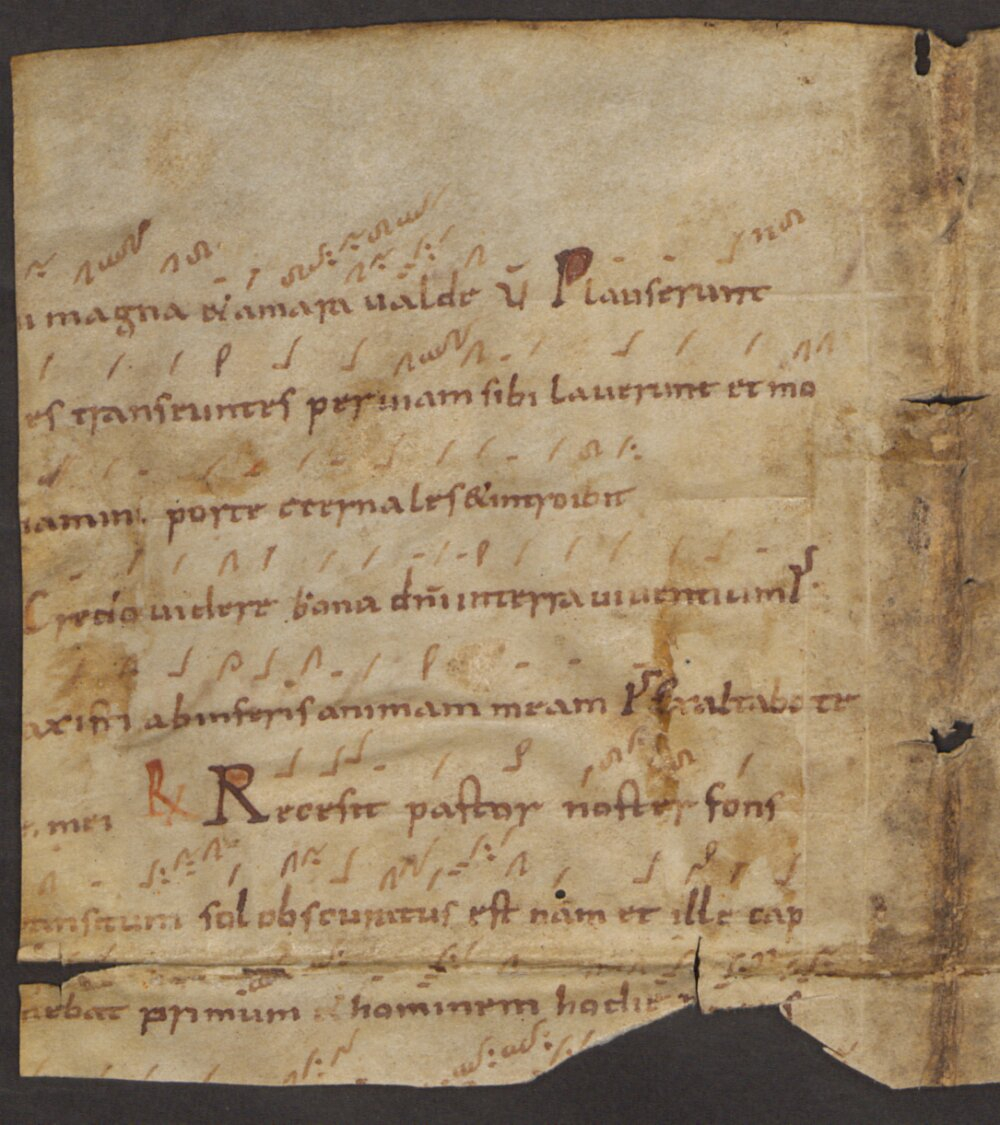 magna & amara valde v̄ Plauserunt
es transeuntes per viam sibilaverunt et mo
amini porte eternales & introibit
Credo videre bona dñi in terra viventium Ps̄
axisti ab inferis animam meam Ps̄ Exaltabo te
mei R Recesit pastor noster fons
transitum sol obscuratus est nam et ille cap
nebat primum hominem hodie